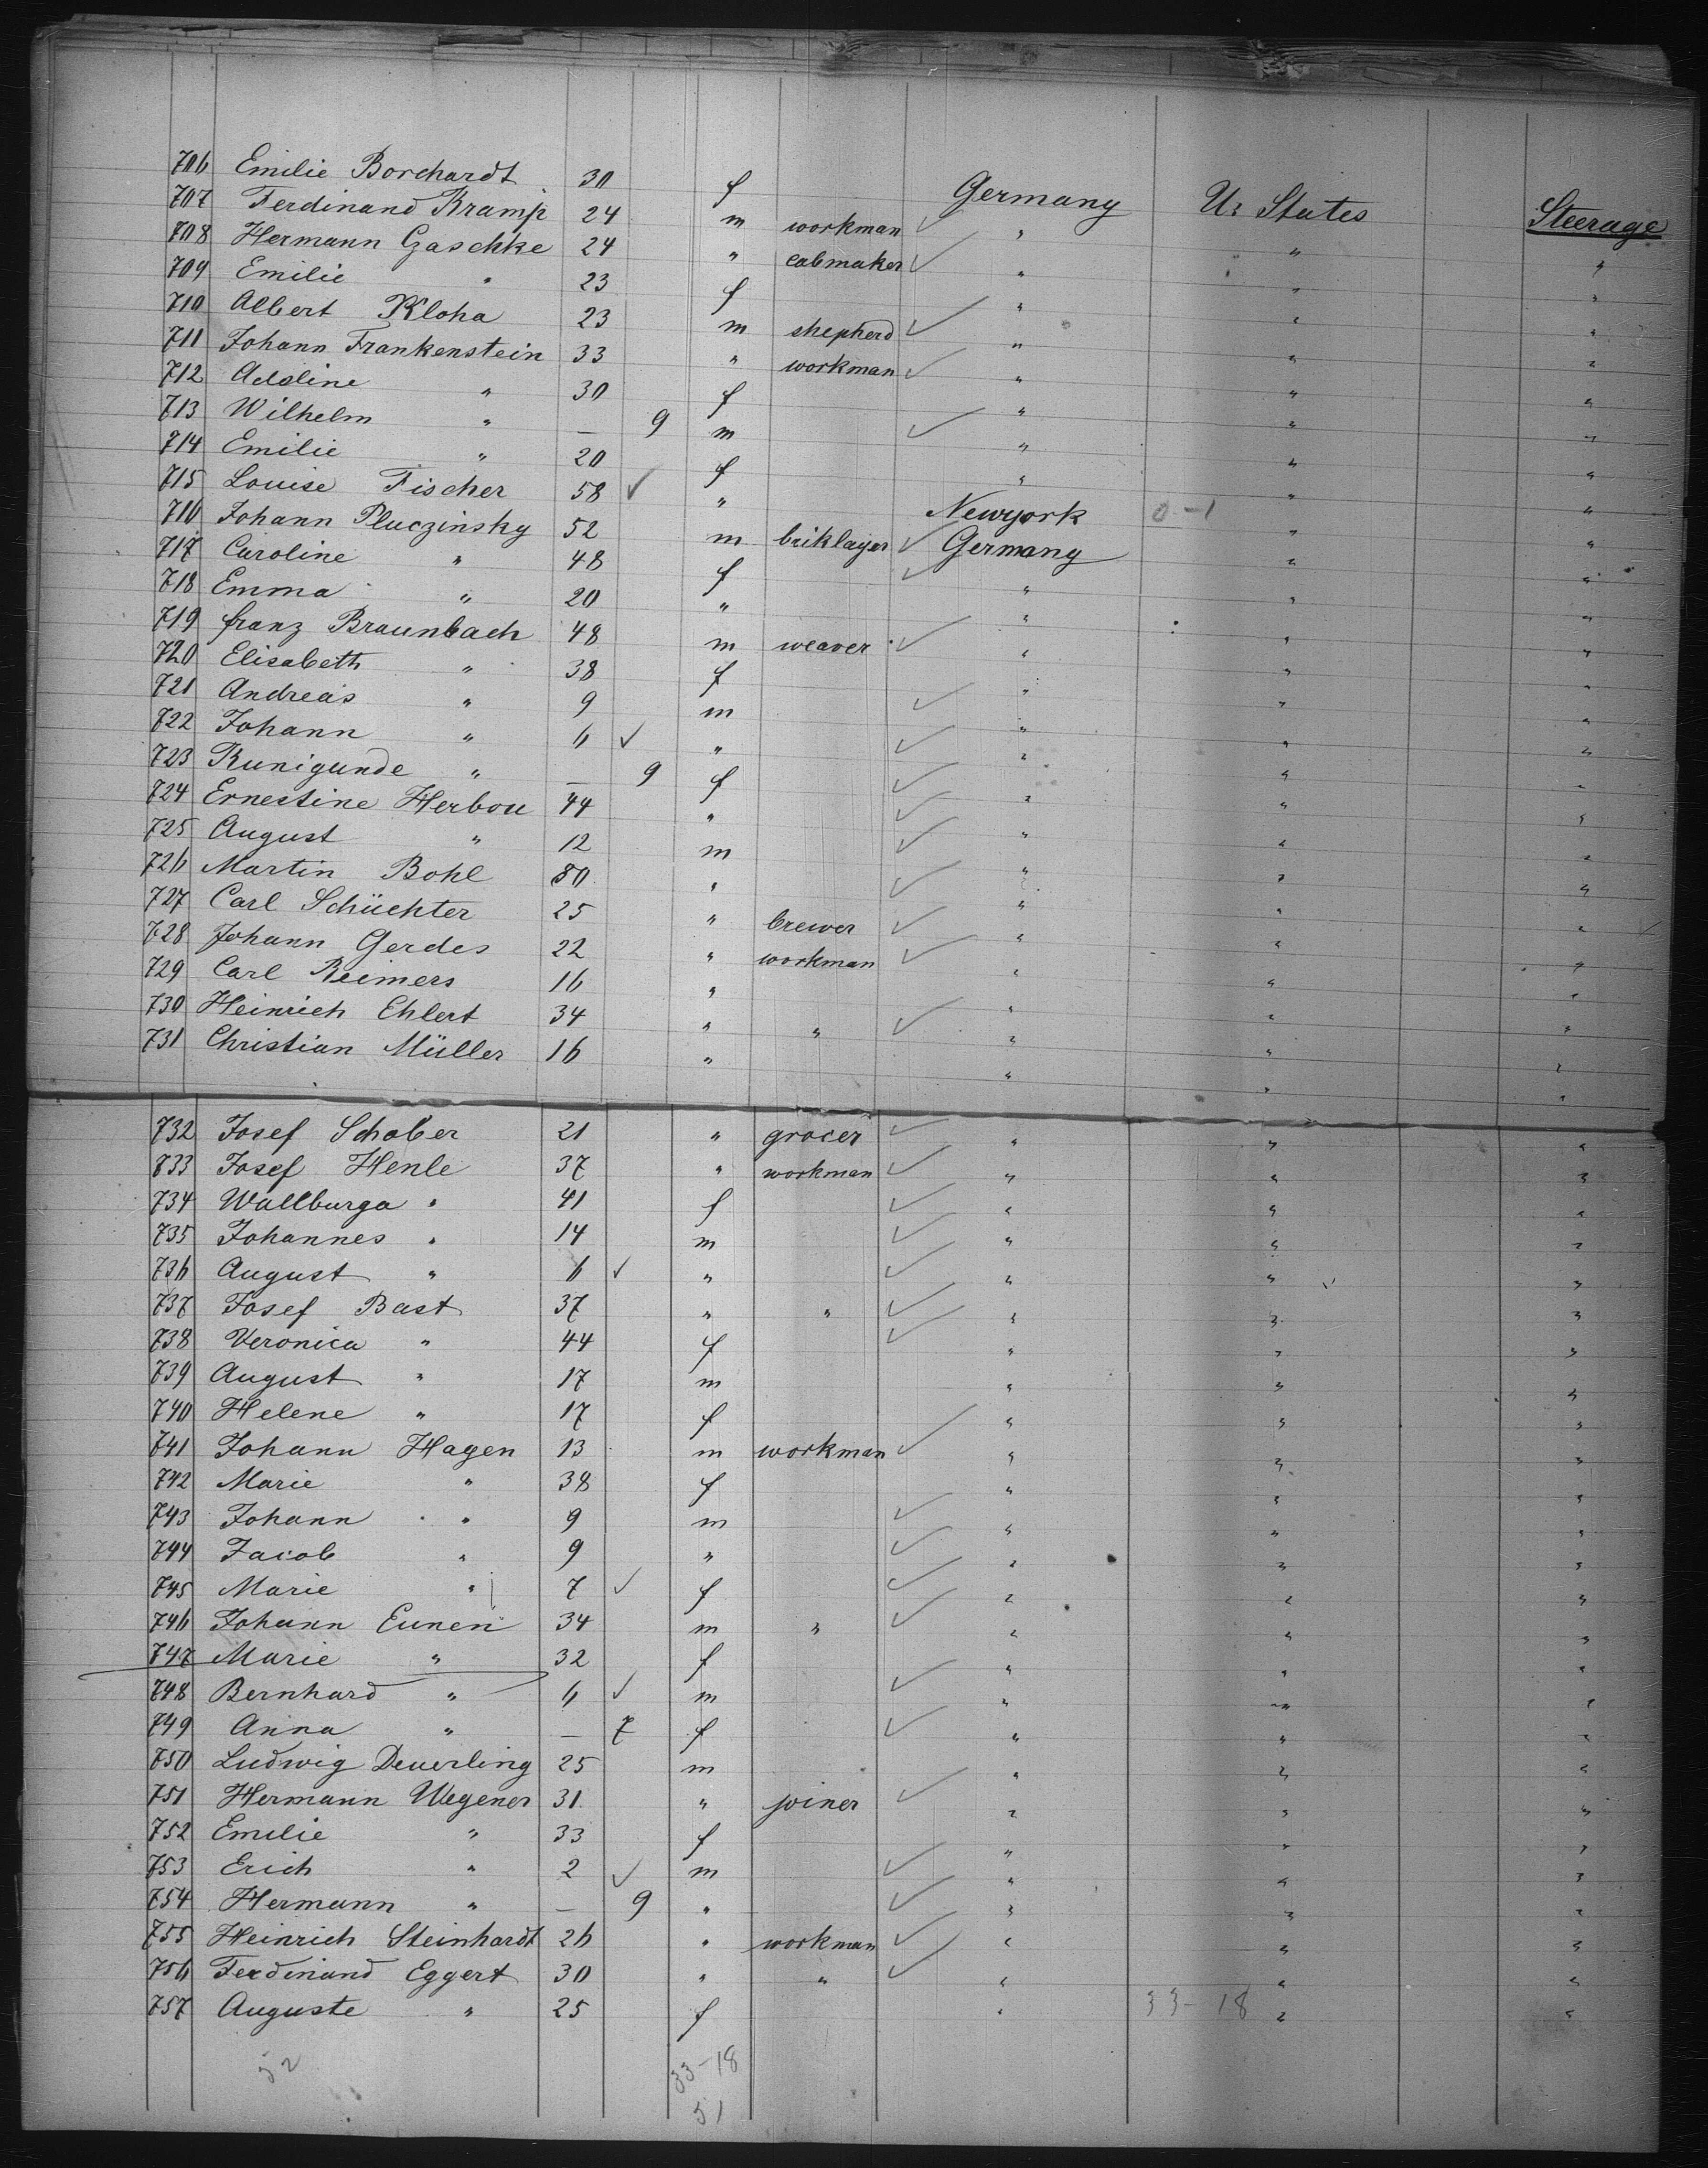 706 Emilie Borchardt 30 f Germany U: States Steerage
707 Ferdinand Kramp 24 m workman ✓ " " "
708 Hermann Gzaschke 24 " cabmaker ✓ " " "
709 Emilie " 23 f " " "
710 Albert Kloha 23 m shepherd ✓ " " "
711 Johann Frankenstein 33 " workman ✓ " " "
712 Adoline " 30 f " " "
713 Wilhelm " — 9 m ✓ " " "
714 Emilie " 20 f " " "
715 Louise Fischer 58 ✓ " Newyork 0-1 " "
716 Johann Pluczinsky 52 m briklayer ✓ Germany " "
717 Caroline " 48 f ✓ " " "
718 Emma " 20 " " " "
719 franz Braunbach 48 m weaver ✓ " " "
720 Elisabeth " 38 f " " "
721 Andreas " 9 m ✓ " " "
722 Johann " 6 ✓ " ✓ " " "
723 Kunigunde " — 9 f ✓ " " "
724 Ernestine Herbou 44 " ✓ " " "
725 August " 12 m ✓ " " "
726 Martin Bohl 80 " ✓ " " "
727 Carl Schüchter 25 " brewer ✓ " " "
728 Johann Gerdes 22 " workman ✓ " " "
729 Carl Reimers 16 " " " "
730 Heinrich Ehlert 34 " " ✓ " " "
731 Christian Müller 16 " " " "
732 Josef Schober 21 " grocer ✓ " " "
733 Josef Henle 37 " workman ✓ " " "
734 Wallburga " 41 f ✓ " " "
735 Johannes " 14 m ✓ " " "
736 August " 6 ✓ " ✓ " " "
737 Josef Bast 37 " " ✓ " " "
738 Veronica " 44 f ✓ " " "
739 August " 17 m " " "
740 Helene " 17 f " " "
741 Johann Hagen 13 m workman ✓ " " "
742 Marie " 38 f " " "
743 Johann " 9 m ✓ " " "
744 Jacob " 9 " ✓ " " "
745 Marie " 7 ✓ f ✓ " " "
746 Johann Eunen 34 m " ✓ " " "
747 Marie " 32 f " " "
748 Bernhard " 6 ✓ m ✓ " " "
749 Anna " — 7 f ✓ " " "
750 Ludwig Deuerling 25 m " " "
751 Hermann Wegener 31 " joiner ✓ " " "
752 Emilie " 33 f " " "
753 Erich " 2 ✓ m ✓ " " "
754 Hermann " — 9 " ✓ " " "
755 Heinrich Steinhardt 26 " workman ✓ " " "
756 Ferdinand Eggert 30 " " ✓ " " "
757 Auguste " 25 f " 33-18 " "
52 33-18
51